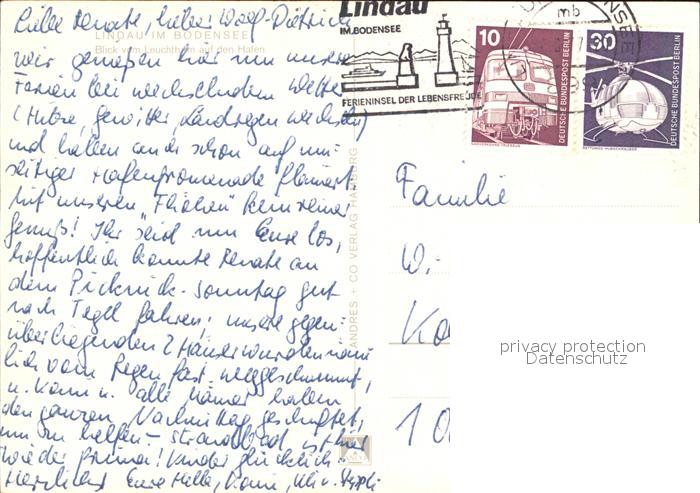 Liebe Renate, lieber Wolf-Dietrich
LINDAU IM BODENSEE
Blick vom Leuchtturm auf den Hafen
wir genießen hier nun unsere
Ferien bei wechselndem Wetter
(Hitze, Gewitter, Landregen wechseln)
und haben auch schon auf
seitiger Hafenpromenade flaniert.
Mit unseren "Flöhen" kein reiner
Genuß! Ihr seid nun Eure los,
hoffentlich konnte Renate an
dem Picknick-Sonntag gut
nach Tegel fahren; unsere gegen-
überliegenden 2 Häuser wurden
lich vom Regen fast weggeschwemmt,
u. alle Männer haben
den ganzen Nachmittag geschuftet,
um zu helfen - Strandbad ist hier
wieder prima! Kinder glücklich.
Herzlichst Eure
ANDRES + CO VERLAG HAMBURG
Lindau
IM BODENSEE
FERIENINSEL DER LEBENSFREUDE
mb
10
DEUTSCHE BUNDESPOST BERLIN
30
DEUTSCHE BUNDESPOST BERLIN
RETTUNGS-HUBSCHRAUBER
Familie
W.-
Ko
10
privacy protection
Datenschutz